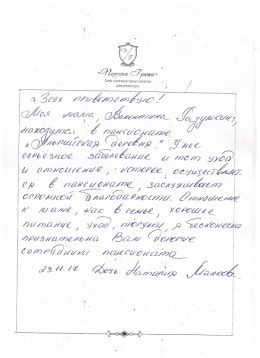 Всех приветствую!
Моя мама, Валентина
находится в пансионате
„Альпийская деревня." У нее
серьезное заболевание и тот уход
и отношение, которое, осуществляет
ся в пансионате, заслуживает
огромной благодарности. Отношение
к маме, как в семье, хорошее
питание, уход, прогулки, я бесконечно
признательна Вам дорогие
сотрудники пансионата
29.11.17. Дочь Наталия